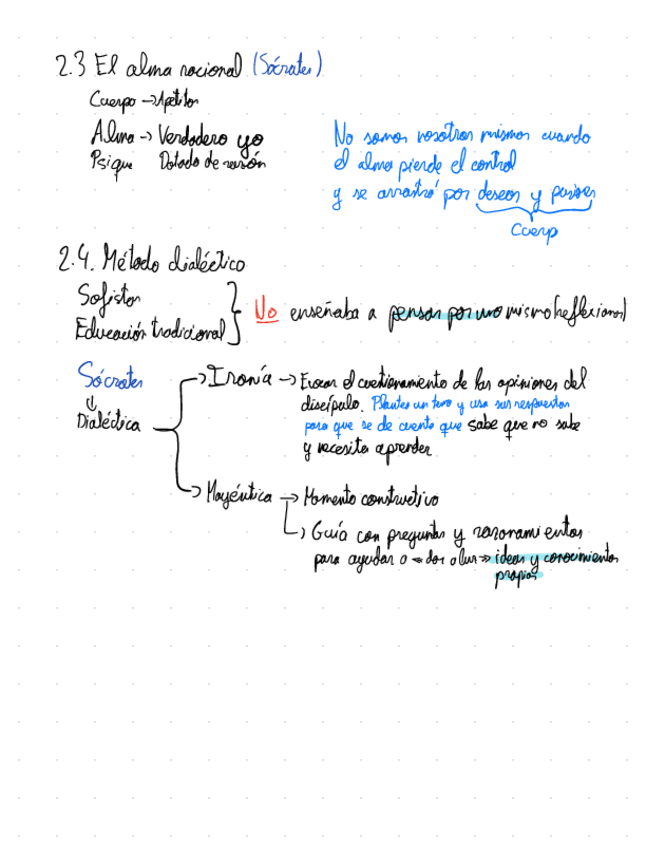 2.3 El alma racional (Sócrates)
Cuerpo → Apetitos
Alma → Verdadero yo
Psique Dotado de razón
No somos nosotros mismos cuando
el alma pierde el control
y se arrastra por deseos y pasiones
Cuerp
2.4. Método dialéctico
Sofistas
Educación tradicional
No enseñaba a pensar por uno mismo (reflexionar)
Sócrates
Dialéctica
→ Ironía → Evocar el cuestionamiento de las opiniones del
discípulo. Plantea un tema y usa sus respuestas
para que se de cuenta que sabe que no sabe
y necesita aprender
→ Mayéutica → Momento constructivo
→ Guía con preguntas y razonamientos
para ayudar a «dar a luz» ideas y conocimientos
propios